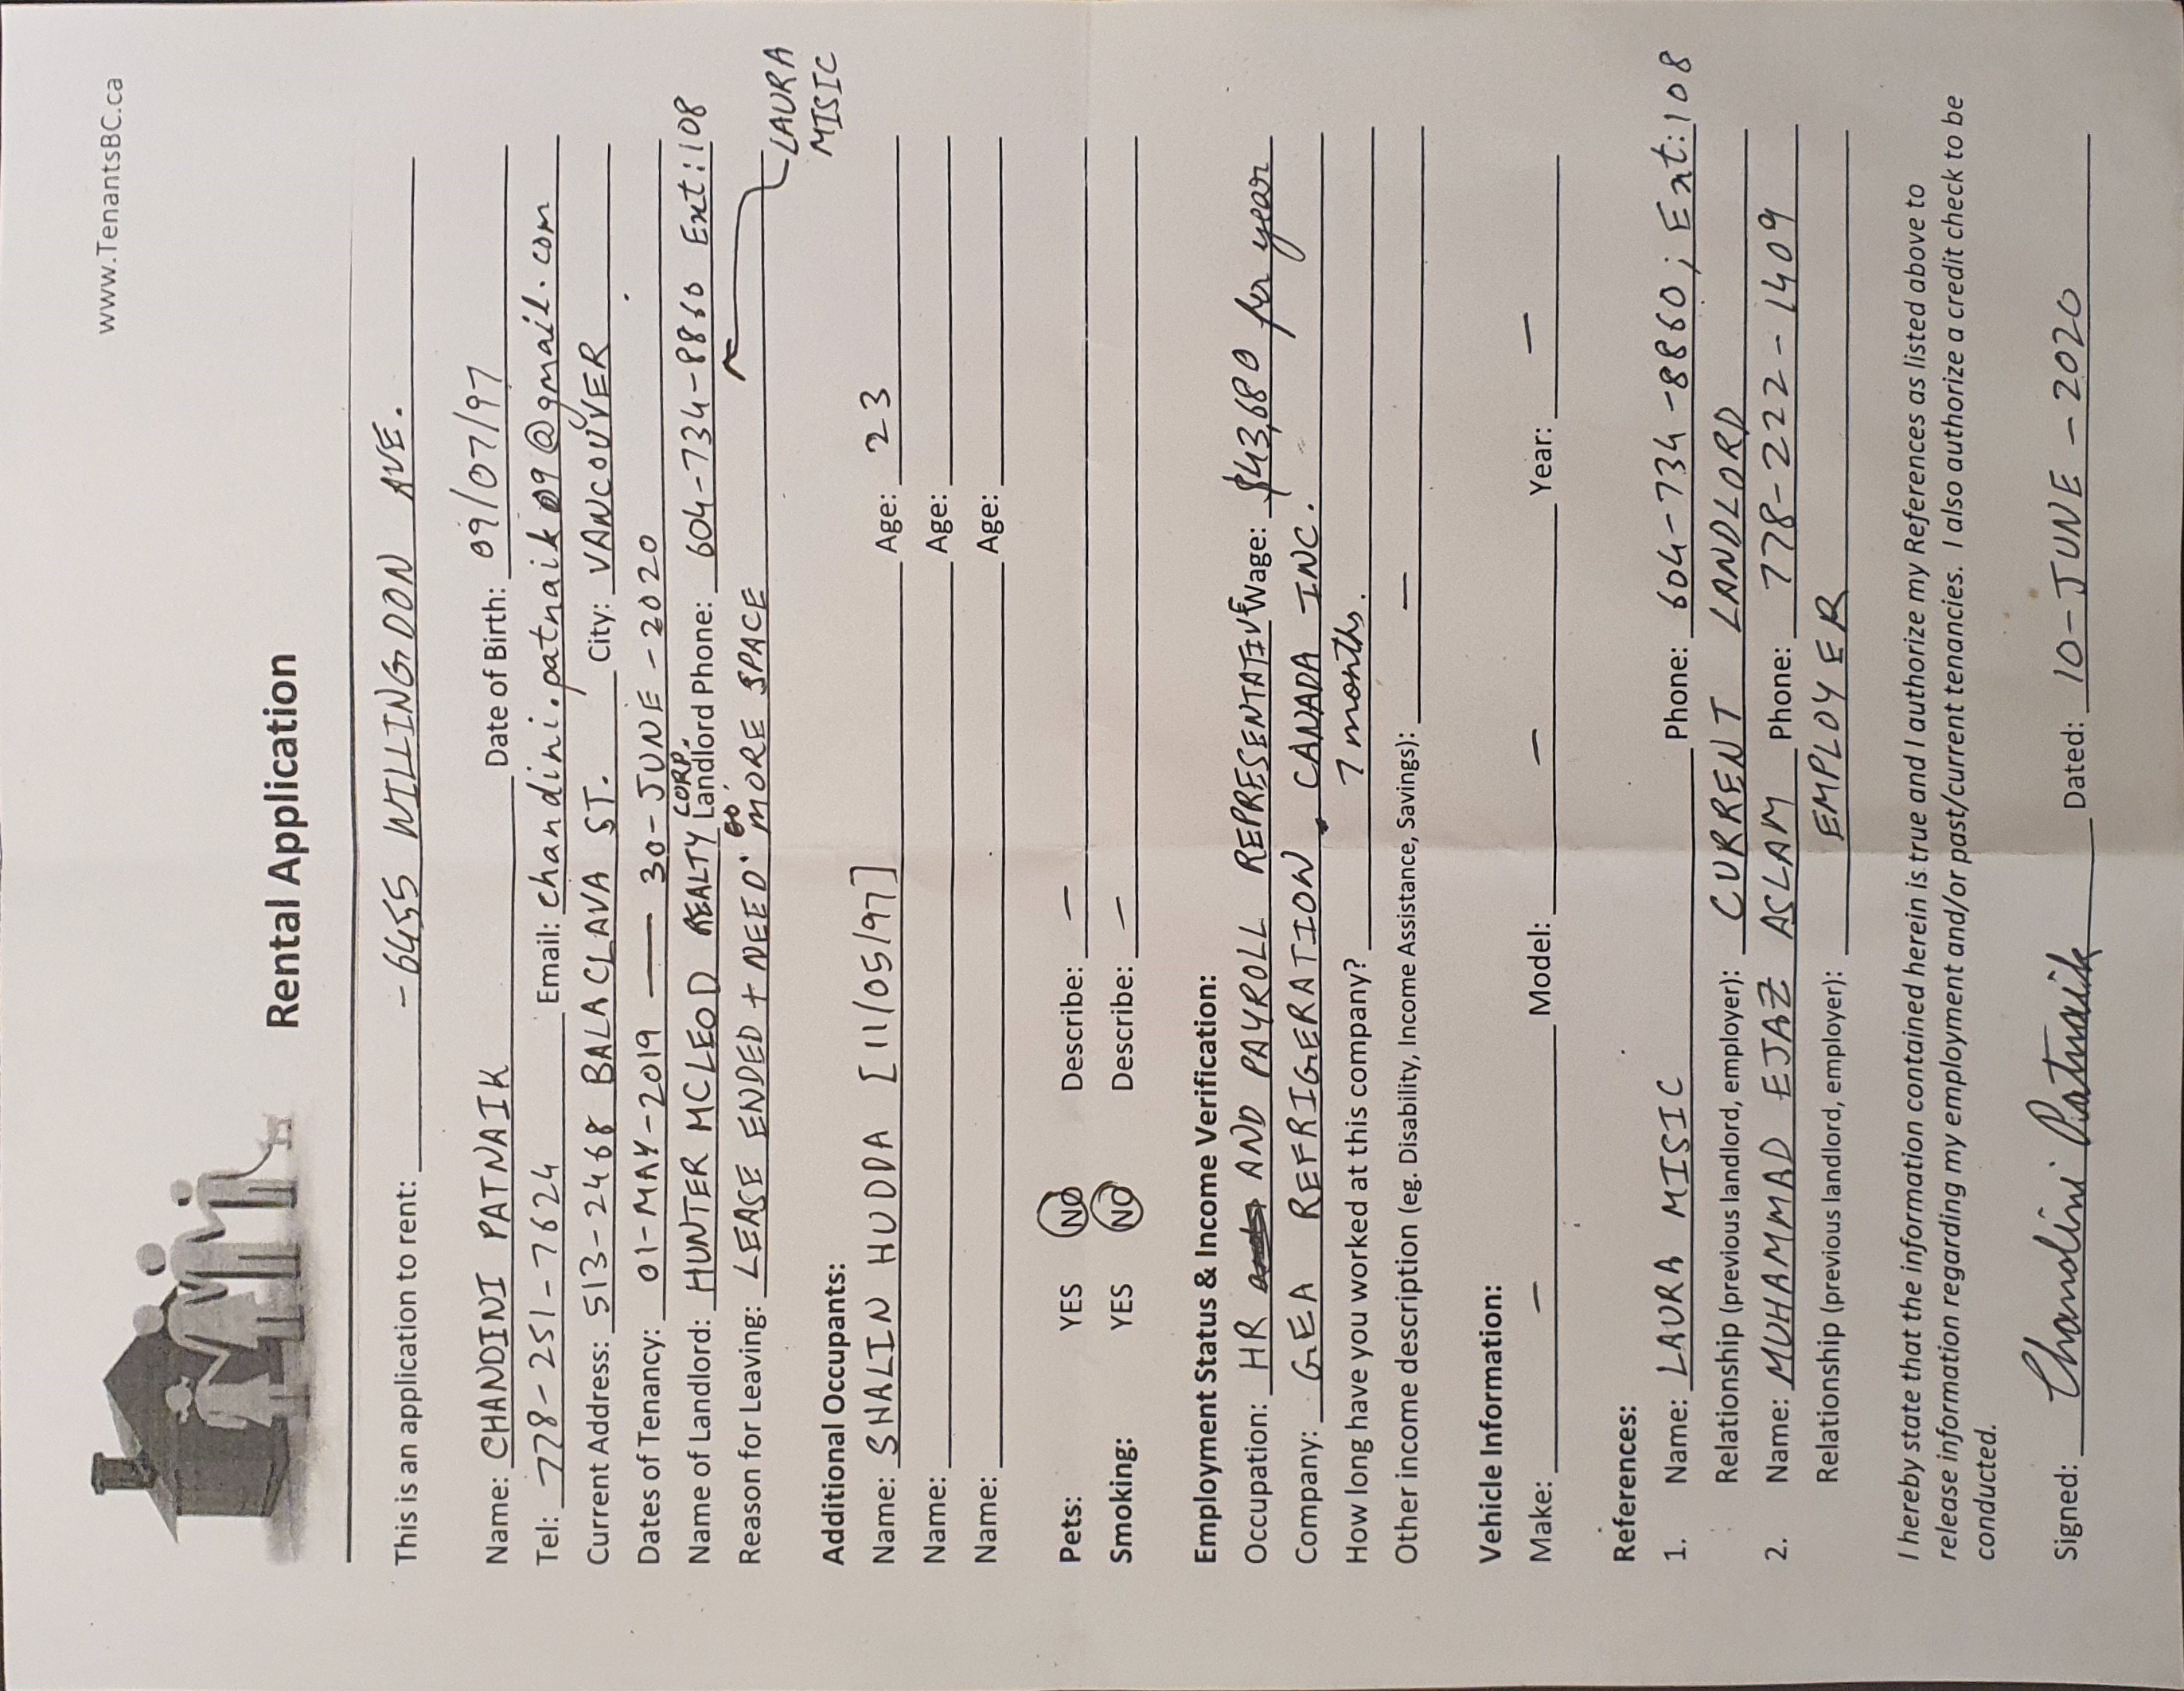 www.TenantsBC.ca
Rental Application
This is an application to rent: -6455 WILLINGDON AVE.
Name: CHANDINI PATNAIK Date of Birth: 09/07/97
Tel: 778-251-7624 Email: chandini.patnaik09@gmail.com
Current Address: 513-2468 BALACLAVA ST. City: VANCOUVER
Dates of Tenancy: 01-MAY-2019 — 30-JUNE-2020
Name of Landlord: HUNTER MCLEOD REALTY CORP. Landlord Phone: 604-734-8860 Ext:108
Reason for Leaving: LEASE ENDED + NEED MORE SPACE
LAURA
MISIC
Additional Occupants:
Name: SHALIN HUDDA [11/05/97] Age: 23
Name: Age:
Name: Age:
Pets: YES NO Describe: —
Smoking: YES NO Describe: —
Employment Status & Income Verification:
Occupation: HR AND PAYROLL REPRESENTATIVE Wage: $43,680 per year
Company: GEA REFRIGERATION CANADA INC.
How long have you worked at this company? 7 months.
Other income description (eg. Disability, Income Assistance, Savings): —
Vehicle Information:
Make: — Model: — Year: —
References:
1. Name: LAURA MISIC Phone: 604-734-8860; Ext:108
Relationship (previous landlord, employer): CURRENT LANDLORD
2. Name: MUHAMMAD EJAZ ASLAM Phone: 778-222-1409
Relationship (previous landlord, employer): EMPLOYER
I hereby state that the information contained herein is true and I authorize my References as listed above to
release information regarding my employment and/or past/current tenancies. I also authorize a credit check to be
conducted.
Signed: Chandini Patnaik Dated: 10-JUNE-2020